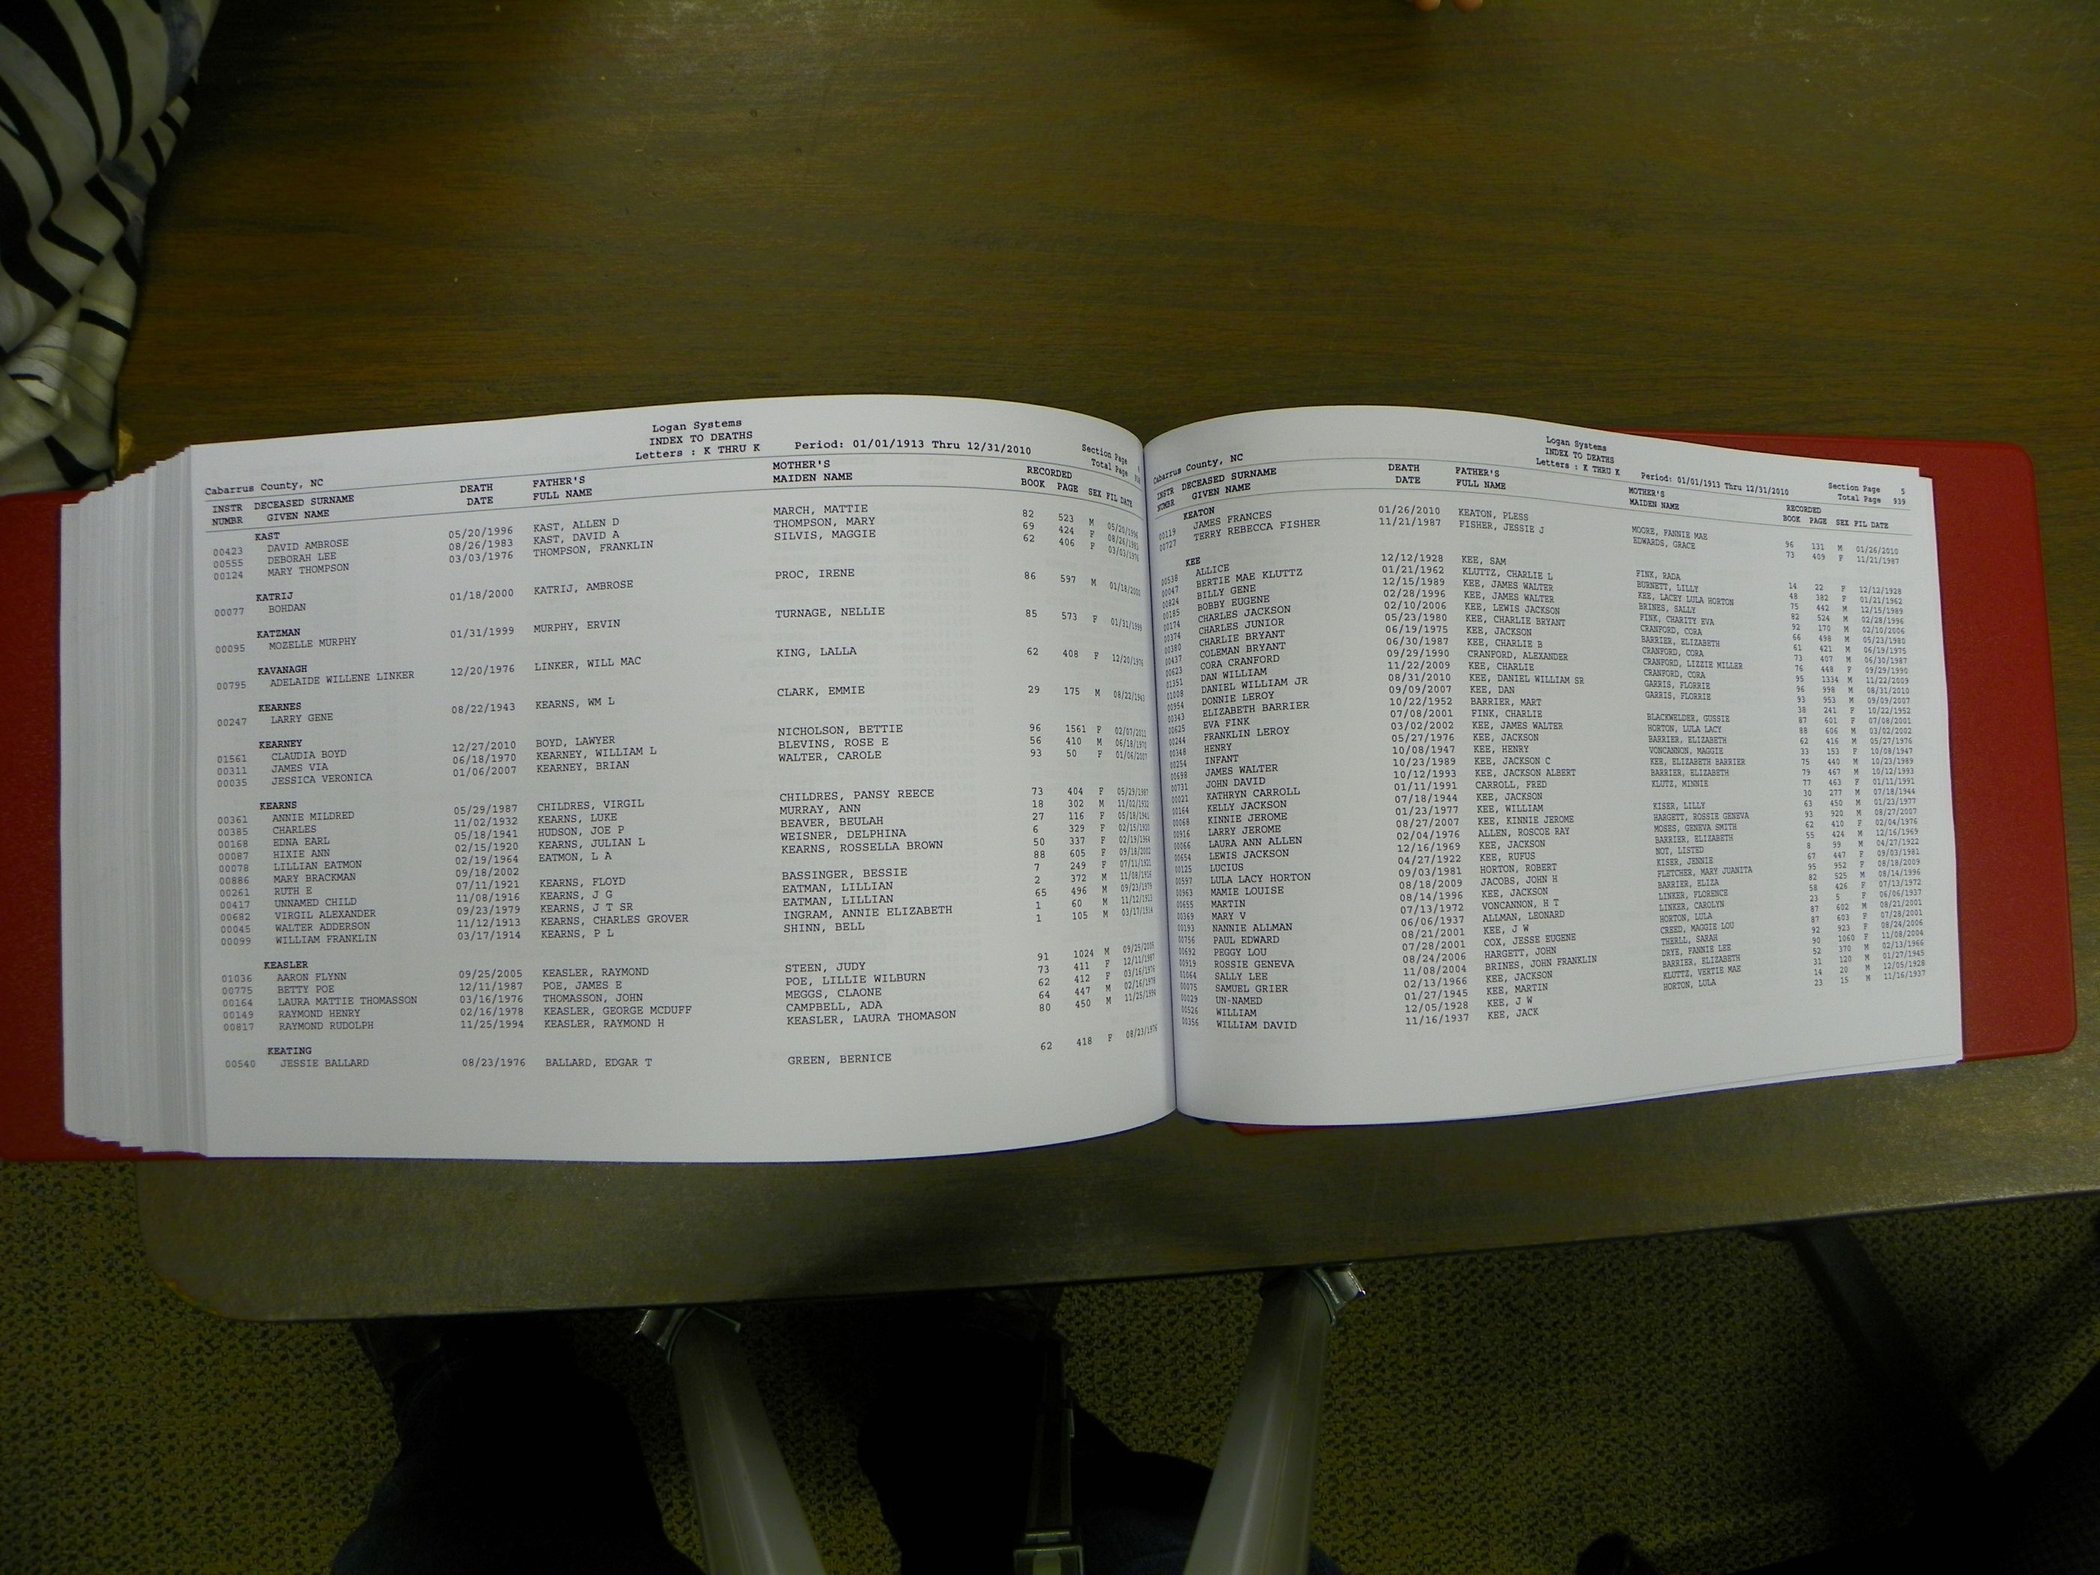 Logan Systems
INDEX TO DEATHS
Letters : K THRU K Period: 01/01/1913 Thru 12/31/2010
Section Page
Cabarrus County, NC Total Page
INSTR NUMBR DECEASED SURNAME GIVEN NAME DEATH DATE FATHER'S FULL NAME MOTHER'S MAIDEN NAME RECORDED BOOK PAGE SEX FIL DATE
KAST
00423 DAVID AMBROSE 05/20/1996 KAST, ALLEN D MARCH, MATTIE 82 523 M 05/20/1996
00555 DEBORAH LEE 08/26/1983 KAST, DAVID A THOMPSON, MARY 69 424 F 08/26/1983
00124 MARY THOMPSON 03/03/1976 THOMPSON, FRANKLIN SILVIS, MAGGIE 62 406 F 03/03/1976
KATRIJ
00077 BOHDAN 01/18/2000 KATRIJ, AMBROSE PROC, IRENE 86 597 M 01/18/2000
KATZMAN
00095 MOZELLE MURPHY 01/31/1999 MURPHY, ERVIN TURNAGE, NELLIE 85 573 F 01/31/1999
KAVANAGH
00795 ADELAIDE WILLENE LINKER 12/20/1976 LINKER, WILL MAC KING, LALLA 62 408 F 12/20/1976
KEARNES
00247 LARRY GENE 08/22/1943 KEARNS, WM L CLARK, EMMIE 29 175 M 08/22/1943
KEARNEY
01561 CLAUDIA BOYD 12/27/2010 BOYD, LAWYER NICHOLSON, BETTIE 96 1561 F 02/07/2011
00311 JAMES VIA 06/18/1970 KEARNEY, WILLIAM L BLEVINS, ROSE E 56 410 M 06/18/1970
00035 JESSICA VERONICA 01/06/2007 KEARNEY, BRIAN WALTER, CAROLE 93 50 F 01/06/2007
KEARNS
00361 ANNIE MILDRED 05/29/1987 CHILDRES, VIRGIL CHILDRES, PANSY REECE 73 404 F 05/29/1987
00385 CHARLES 11/02/1932 KEARNS, LUKE MURRAY, ANN 18 302 M 11/02/1932
00168 EDNA EARL 05/18/1941 HUDSON, JOE P BEAVER, BEULAH 27 116 F 05/18/1941
00087 HIXIE ANN 02/15/1920 KEARNS, JULIAN L WEISNER, DELPHINA 6 329 F 02/15/1920
00078 LILLIAN EATMON 02/19/1964 EATMON, L A KEARNS, ROSSELLA BROWN 50 337 F 02/19/1964
00886 MARY BRACKMAN 09/18/2002 88 605 F 09/18/2002
00261 RUTH E 07/11/1921 KEARNS, FLOYD BASSINGER, BESSIE 7 249 F 07/11/1921
00417 UNNAMED CHILD 11/08/1916 KEARNS, J G EATMAN, LILLIAN 2 372 M 11/08/1916
00682 VIRGIL ALEXANDER 09/23/1979 KEARNS, J T SR EATMAN, LILLIAN 65 496 M 09/23/1979
00045 WALTER ADDERSON 11/12/1913 KEARNS, CHARLES GROVER INGRAM, ANNIE ELIZABETH 1 60 M 11/12/1913
00099 WILLIAM FRANKLIN 03/17/1914 KEARNS, P L SHINN, BELL 1 105 M 03/17/1914
KEASLER
01036 AARON FLYNN 09/25/2005 KEASLER, RAYMOND STEEN, JUDY 91 1024 M 09/25/2005
00775 BETTY POE 12/11/1987 POE, JAMES E POE, LILLIE WILBURN 73 411 F 12/11/1987
00164 LAURA MATTIE THOMASSON 03/16/1976 THOMASSON, JOHN MEGGS, CLAONE 62 412 F 03/16/1976
00149 RAYMOND HENRY 02/16/1978 KEASLER, GEORGE MCDUFF CAMPBELL, ADA 64 447 M 02/16/1978
00817 RAYMOND RUDOLPH 11/25/1994 KEASLER, RAYMOND H KEASLER, LAURA THOMASON 80 450 M 11/25/1994
KEATING
00540 JESSIE BALLARD 08/23/1976 BALLARD, EDGAR T GREEN, BERNICE 62 418 F 08/23/1976
Logan Systems
INDEX TO DEATHS
Letters : K THRU K Period: 01/01/1913 Thru 12/31/2010
Section Page 5
Cabarrus County, NC Total Page 939
INSTR NUMBR DECEASED SURNAME GIVEN NAME DEATH DATE FATHER'S FULL NAME MOTHER'S MAIDEN NAME RECORDED BOOK PAGE SEX FIL DATE
KEATON
00119 JAMES FRANCES 01/26/2010 KEATON, PLESS MOORE, FANNIE MAE 96 131 M 01/26/2010
00727 TERRY REBECCA FISHER 11/21/1987 FISHER, JESSIE J EDWARDS, GRACE 73 409 F 11/21/1987
KEE
00538 ALLICE 12/12/1928 KEE, SAM FINK, RADA 14 22 F 12/12/1928
00047 BERTIE MAE KLUTTZ 01/21/1962 KLUTTZ, CHARLIE L BURNETT, LILLY 48 382 F 01/21/1962
00824 BILLY GENE 12/15/1989 KEE, JAMES WALTER KEE, LACEY LULA HORTON 75 442 M 12/15/1989
00185 BOBBY EUGENE 02/28/1996 KEE, JAMES WALTER BRINES, SALLY 82 524 M 02/28/1996
00174 CHARLES JACKSON 02/10/2006 KEE, LEWIS JACKSON FINK, CHARITY EVA 92 170 M 02/10/2006
00374 CHARLES JUNIOR 05/23/1980 KEE, CHARLIE BRYANT CRANFORD, CORA 66 498 M 05/23/1980
00380 CHARLIE BRYANT 06/19/1975 KEE, JACKSON BARRIER, ELIZABETH 61 421 M 06/19/1975
00437 COLEMAN BRYANT 06/30/1987 KEE, CHARLIE B CRANFORD, CORA 73 407 M 06/30/1987
00623 CORA CRANFORD 09/29/1990 CRANFORD, ALEXANDER CRANFORD, LIZZIE MILLER 76 448 F 09/29/1990
01351 DAN WILLIAM 11/22/2009 KEE, CHARLIE CRANFORD, CORA 95 1334 M 11/22/2009
01008 DANIEL WILLIAM JR 08/31/2010 KEE, DANIEL WILLIAM SR GARRIS, FLORRIE 96 998 M 08/31/2010
00954 DONNIE LEROY 09/09/2007 KEE, DAN GARRIS, FLORRIE 93 953 M 09/09/2007
00343 ELIZABETH BARRIER 10/22/1952 BARRIER, MART 38 241 F 10/22/1952
00625 EVA FINK 07/08/2001 FINK, CHARLIE BLACKWELDER, GUSSIE 87 601 F 07/08/2001
00244 FRANKLIN LEROY 03/02/2002 KEE, JAMES WALTER HORTON, LULA LACY 88 606 M 03/02/2002
00348 HENRY 05/27/1976 KEE, JACKSON BARRIER, ELIZABETH 62 416 M 05/27/1976
00254 INFANT 10/08/1947 KEE, HENRY VONCANNON, MAGGIE 33 153 F 10/08/1947
00698 JAMES WALTER 10/23/1989 KEE, JACKSON C KEE, ELIZABETH BARRIER 75 440 M 10/23/1989
00731 JOHN DAVID 10/12/1993 KEE, JACKSON ALBERT BARRIER, ELIZABETH 79 467 M 10/12/1993
00021 KATHRYN CARROLL 01/11/1991 CARROLL, FRED KLUTZ, MINNIE 77 463 F 01/11/1991
00164 KELLY JACKSON 07/18/1944 KEE, JACKSON 30 277 M 07/18/1944
00068 KINNIE JEROME 01/23/1977 KEE, WILLIAM KISER, LILLY 63 450 M 01/23/1977
00916 LARRY JEROME 08/27/2007 KEE, KINNIE JEROME HARGETT, ROSSIE GENEVA 93 920 M 08/27/2007
00066 LAURA ANN ALLEN 02/04/1976 ALLEN, ROSCOE RAY MOSES, GENEVA SMITH 62 410 F 02/04/1976
00654 LEWIS JACKSON 12/16/1969 KEE, JACKSON BARRIER, ELIZABETH 55 424 M 12/16/1969
00125 LUCIUS 04/27/1922 KEE, RUFUS NOT, LISTED 8 99 M 04/27/1922
00597 LULA LACY HORTON 09/03/1981 HORTON, ROBERT KISER, JENNIE 67 447 F 09/03/1981
00963 MAMIE LOUISE 08/18/2009 JACOBS, JOHN H FLETCHER, MARY JUANITA 95 952 F 08/18/2009
00655 MARTIN 08/14/1996 KEE, JACKSON BARRIER, ELIZA 82 525 M 08/14/1996
00369 MARY V 07/13/1972 VONCANNON, H T LINKER, FLORENCE 58 426 F 07/13/1972
00193 NANNIE ALLMAN 06/06/1937 ALLMAN, LEONARD LINKER, CAROLYN 23 5 F 06/06/1937
00756 PAUL EDWARD 08/21/2001 KEE, J W HORTON, LULA 87 602 M 08/21/2001
00692 PEGGY LOU 07/28/2001 COX, JESSE EUGENE CREED, MAGGIE LOU 87 603 F 07/28/2001
00919 ROSSIE GENEVA 08/24/2006 HARGETT, JOHN THERLL, SARAH 92 923 F 08/24/2006
01064 SALLY LEE 11/08/2004 BRINES, JOHN FRANKLIN DRYE, FANNIE LEE 90 1060 F 11/08/2004
00075 SAMUEL GRIER 02/13/1966 KEE, JACKSON BARRIER, ELIZABETH 52 370 M 02/13/1966
00029 UN-NAMED 01/27/1945 KEE, MARTIN KLUTTZ, VERTIE MAE 31 120 M 01/27/1945
00526 WILLIAM 12/05/1928 KEE, J W HORTON, LULA 14 20 M 12/05/1928
00356 WILLIAM DAVID 11/16/1937 KEE, JACK 23 15 M 11/16/1937